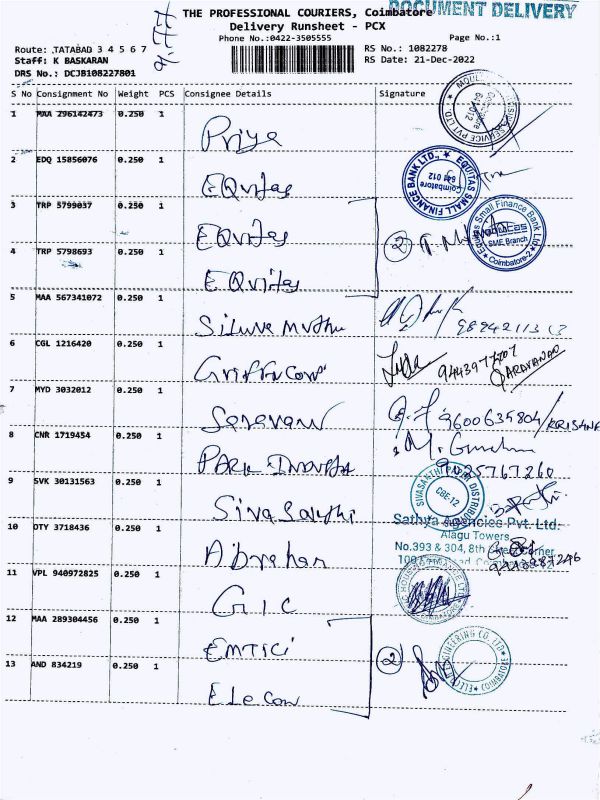 THE PROFESSIONAL COURIERS, Coimbatore
DOCUMENT DELIVERY
Delivery Runsheet - PCX
Phone No.:0422-3505555
Page No.:1
Route: TATABAD 3 4 5 6 7
RS No.: 1082278
Staff: K BASKARAN
RS Date: 21-Dec-2022
DRS No.: DCJB108227801
S No Consignment No Weight PCS Consignee Details Signature
1 MAA 296142473 0.250 1 Priya
2 EDQ 15856076 0.250 1 EQuitas
EQUITAS SMALL FINANCE BANK LTD., Coimbatore 641 012
3 TRP 5799037 0.250 1 EQuitas
Equitas Small Finance Bank Ltd equitas SME Branch Coimbatore-2
4 TRP 5798693 0.250 1 EQuitas
2
5 MAA 567341072 0.250 1 Siluva Muthu
6 CGL 1216420 0.250 1
9443977707
7 MYD 3032012 0.250 1 Saravan
9600635804/KRISHNA
8 CNR 1719454 0.250 1
9 SVK 30131563 0.250 1 Siva Sakthi
CBE-12
Sathya Agencies Pvt. Ltd.
10 DTY 3718436 0.250 1
Alagu Towers,
No.393 & 304, 8th
11 VPL 940972825 0.250 1 GIC
12 MAA 289304456 0.250 1
13 AND 834219 0.250 1 Elecon
2